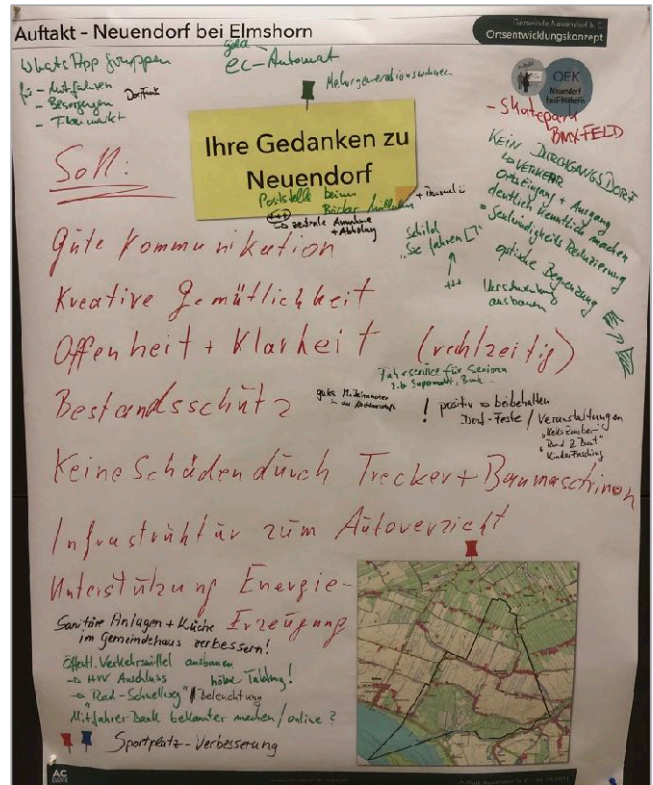 Auftakt - Neuendorf bei Elmshorn
Gemeinde Neuendorf b. E.
Ortsentwicklungskonzept
OEK
Neuendorf
bei Elmshorn
WhatsApp Gruppen
für - Mitfahren
- Besorgungen
- Flohmarkt
DorfFunk
ec-Automat
Mehrgenerationswohnen
- Skatepark
BMX-FELD
Ihre Gedanken zu
Neuendorf
Poststelle beim
Bäcker
+++
→ zentrale Annahme
+ Abholung
KEIN DURCHGANGSDORF
↳ VERKEHR
Ortseingang + Ausgang
deutlich kenntlich machen
= Geschwindigkeits Reduzierung
optische Begrenzung
Schild
"Sie fahren [ ]"
↑
+++
ausbauen
Soll:
Gute Kommunikation
Kreative Gemütlichkeit
Offenheit + Klarheit (rechtzeitig)
Fahrservice für Senioren
z.b Supermarkt, Bank...
Bestandsschutz
gutes Miteinander
in der Nachbarschaft
! positiv → beibehalten
Dorf-Feste / Veranstaltungen
"Kekszauber"
"Bund 2 Bunt"
"Kinderfasching"
Keine Schäden durch Trecker + Baumaschinen
Infrastruktur zum Autoverzicht
Unterstützung Energie-
Erzeugung
Sanitäre Anlagen + Küche
im Gemeindehaus verbessern!
Öffentl. Verkehrsmittel ausbauen
→ HVV Anschluss höhere Taktung!
→ "Rad-Schnellweg" / Beleuchtung
Mitfahrer-Bank bekannter machen / online?
Sportplatz-Verbesserung
AC